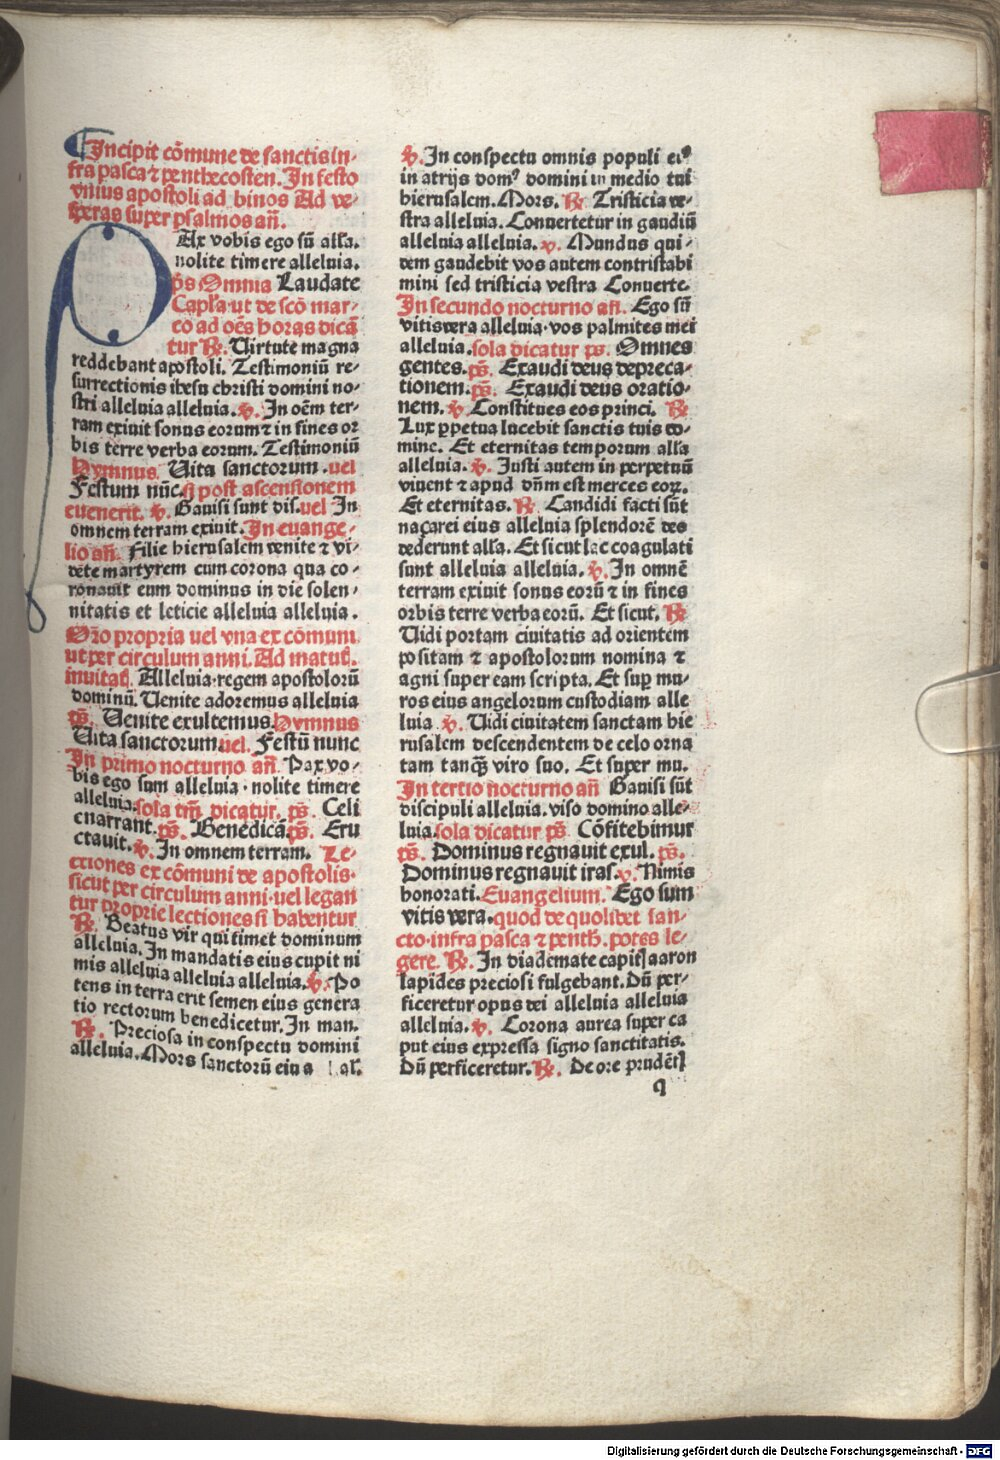 Incipit cōmune de sanctis in-
fra pasca ⁊ penthecosten. In festo
vnius apostoli ad binos Ad ve-
speras super psalmos añ.
Ax vobis ego sū alła.
nolite timere alleluia.
p̄s Omnia Laudate
Capła ut de scō mar-
co ad oēs horas dicā
tur ℟. Uirtute magna
reddebant apostoli. Testimoniū re-
surrectionis ihesu christi domini no-
stri alleluia alleluia. ℣. In oēm ter-
ram exiuit sonus eorum ⁊ in fines or
bis terre verba eorum. Testimoniū
Hymnus Uita sanctorum .uel
Festum nūc. si post ascensionem
euenerit. ℣. Gauisi sunt dis. uel In
omnem terram exiuit. In euange-
lio añ. Filie hierusalem venite ⁊ vi-
dete martyrem cum corona qua co-
ronauit eum dominus in die solen-
nitatis et leticie alleluia alleluia.
Oro propria uel vna ex cōmuni
ut per circulum anni. Ad matut̄.
inuitat̄. Alleluia·regem apostolorū
dominū. Uenite adoremus alleluia
p̄s. Uenite exultemus. Hymnus
Uita sanctorum uel. Festū nunc
In primo nocturno añ Pax vo-
bis ego sum alleluia · nolite timere
alleluia. sola tm̄ dicatur. p̄s. Celi
enarrant. p̄s. Benedicā. p̄s. Eru
ctauit. ℣. In omnem terram. Le-
ctiones ex cōmuni de apostolis·
sicut per circulum anni·uel legan
tur proprie lectiones si habentur
℟. Beatus vir qui timet dominum
alleluia. In mandatis eius cupit ni
mis alleluia alleluia alleluia. ℣. Po
tens in terra erit semen eius genera
tio rectorum benedicetur. In man.
℟. Preciosa in conspectu domini
alleluia. Mors sanctorū eius al.
℣. In conspectu omnis populi eiꝰ
in atrijs domꝰ domini in medio tui
hierusalem. Mors. ℟. Tristicia ve-
stra alleluia. Conuertetur in gaudiū
alleluia alleluia. ℣. Mundus qui-
dem gaudebit vos autem contristabi
mini sed tristicia vestra Conuerte.
In secundo nocturno añ. Ego sū
vitis vera alleluia·vos palmites mei
alleluia. sola dicatur ps. Omnes
gentes. p̄s. Exaudi deus depreca-
tionem. p̄s. Exaudi deus oratio-
nem. ℣. Constitues eos princi. ℟
Lux ꝑpetua lucebit sanctis tuis do-
mine. Et eternitas temporum alła
alleluia. ℣. Justi autem in perpetuū
viuent ⁊ apud dn̄m est merces eoꝝ.
Et eternitas. ℟. Candidi facti sūt
naçarei eius alleluia splendorē des
dederunt alła. Et sicut lac coagulati
sunt alleluia alleluia. ℣. In omnē
terram exiuit sonus eorū ⁊ in fines
orbis terre verba eorū. Et sicut. ℟
Uidi portam ciuitatis ad orientem
positam ⁊ apostolorum nomina ⁊
agni super eam scripta. Et suꝑ mu-
ros eius angelorum custodiam alle
luia ℣. Uidi ciuitatem sanctam hie
rusalem descendentem de celo orna
tam tanq̄ȝ viro suo. Et super mu.
In tertio nocturno añ Gauisi sūt
discipuli alleluia. viso domino alle-
luia. sola dicatur p̄s Cōfitebimur
p̄s. Dominus regnauit exul. p̄s.
Dominus regnauit iras. ℣. Nimis
honorati. Euangelium. Ego sum
vitis vera. quod de quolibet san-
cto·infra pasca ⁊ penth̄. potes le-
gere. ℟. In diademate capitꝭ aaron
lapides preciosi fulgebant. Dū per-
ficeretur opus dei alleluia alleluia
alleluia. ℣. Corona aurea super ca
put eius expressa signo sanctitatis.
Dū perficeretur. ℟. De ore prudētꝭ
q
Digitalisierung gefördert durch die Deutsche Forschungsgemeinschaft - DFG